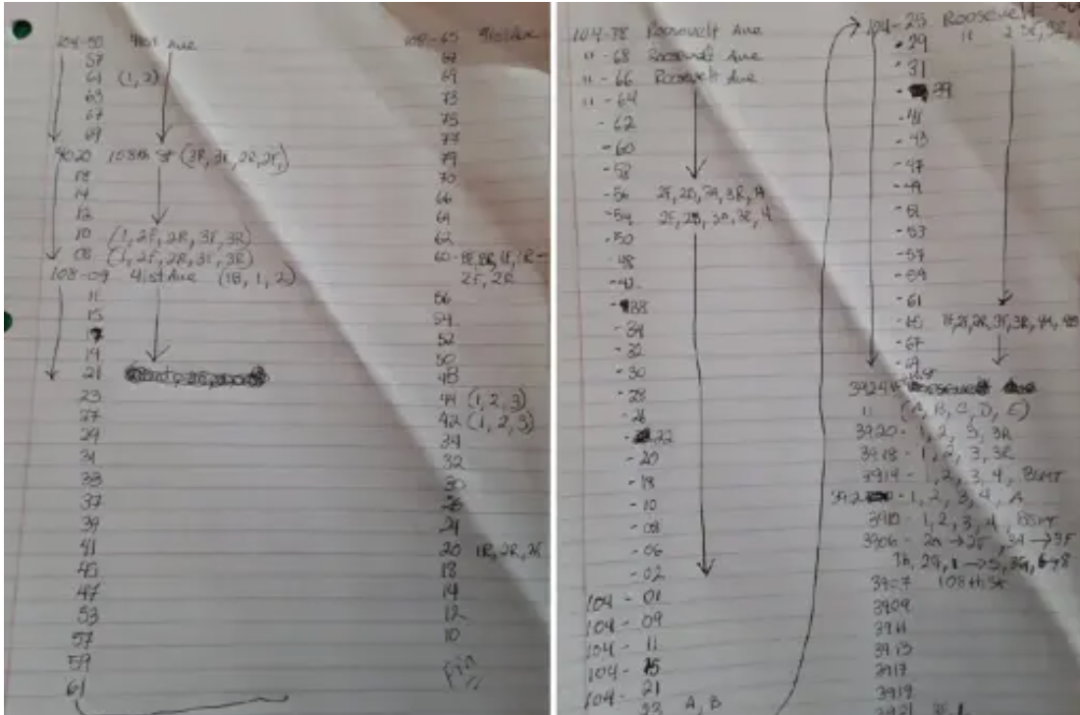 57
61 (1, 2)
63
67
69
4020 108th St (3R, 3F, 2R, 2F,)
18
14
12
10 (1, 2F, 2R, 3F, 3R)
08 (1, 2F, 2R, 3F, 3R)
108-09 41st Ave (1B, 1, 2)
11
15
17
19
21
23
27
29
31
33
37
39
41
45
47
53
57
59
61
108-65 41st Ave
67
69
73
75
77
79
70
66
64
62
60-
2F, 2R
56
54
52
50
48
44 (1, 2, 3)
42 (1, 2, 3)
34
32
30
26
24
20 1R, 2R, 2F
18
14
12
10
Fin
104-78 Roosevelt Ave
" - 68 Roosevelt Ave
" - 66 Roosevelt Ave
" - 64
- 62
- 60
- 58
- 56
- 54
- 50
- 48
- 42
- 38
- 34
- 32
- 30
- 28
- 26
- 22
- 20
- 18
- 10
- 08
- 06
- 02
104 - 01
104 - 09
104 - 11
104 - 15
104 - 21
23 A, B
104-25 Roosevelt Ave
- 29
- 31
- 39
- 41
- 43
- 47
- 49
- 51
- 53
- 57
- 59
- 61
- 65 1F, 2F, 2R, 3F, 3R, 4A, 4B
- 67
- 69
" (A, B, C, D, E)
3920 - 1, 2, 3, 3R
3918 - 1, 2, 3, 3R
3914 - 1, 2, 3, 4, BSMT
- 1, 2, 3, 4, A
3910 - 1, 2, 3, 4, BSMT
3906 - 2A → 2F, 3A → 3F
3907 108th St
3909
3911
3913
3917
3919